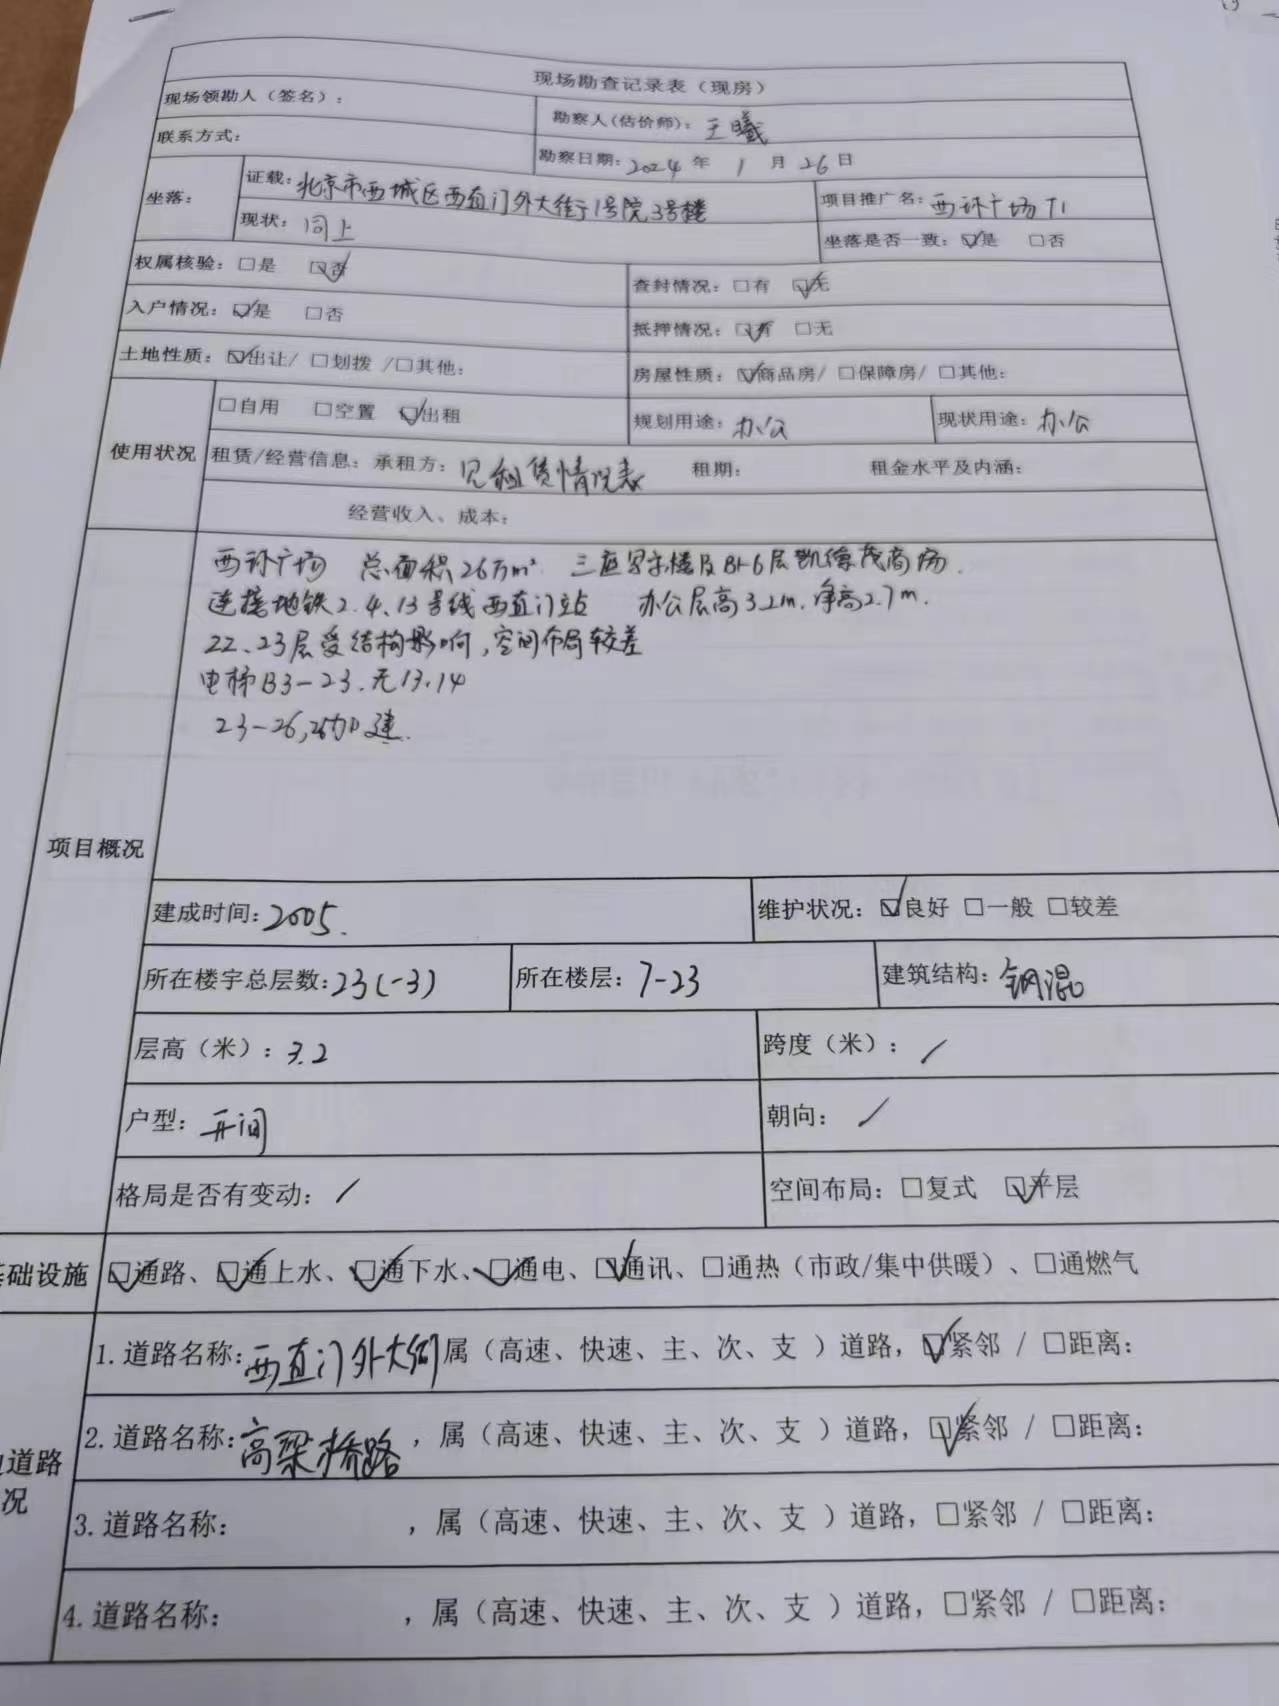 现场勘查记录表（现房）
现场领勘人（签名）： 勘察人(估价师)：王曦
联系方式： 勘察日期：2024 年 1 月 26 日
坐落： 证载：北京市西城区西直门外大街1号院3号楼 项目推广名：西环广场T1
现状：同上 坐落是否一致：☑是 □否
权属核验：□是 ☑否 查封情况：□有 ☑无
入户情况：☑是 □否 抵押情况：☑有 □无
土地性质：☑出让/ □划拨 /□其他： 房屋性质：☑商品房/ □保障房/ □其他：
使用状况 □自用 □空置 ☑出租 规划用途：办公 现状用途：办公
租赁/经营信息：承租方：见租赁情况表 租期： 租金水平及内涵：
经营收入、成本：
项目概况
西环广场 总面积26万m² 三座写字楼及B1-6层凯德茂商场.
连接地铁2.4.13号线西直门站 办公层高3.2m.净高2.7m.
22、23层受结构影响,空间布局较差
电梯B3-23.无13.14
23-26,26加建.
建成时间：2005. 维护状况：☑良好 □一般 □较差
所在楼宇总层数：23(-3) 所在楼层：7-23 建筑结构：钢混
层高（米）：3.2 跨度（米）：/
户型：开间 朝向：/
格局是否有变动：/ 空间布局：□复式 ☑平层
础设施 ☑通路、☑通上水、☑通下水、☑通电、☑通讯、□通热（市政/集中供暖）、□通燃气
道路
况
1.道路名称：西直门外大街属（高速、快速、主、次、支 ）道路，☑紧邻 / □距离：
2.道路名称：高梁桥路 ，属（高速、快速、主、次、支 ）道路，☑紧邻 / □距离：
3.道路名称： ，属（高速、快速、主、次、支 ）道路，□紧邻 / □距离：
4.道路名称： ，属（高速、快速、主、次、支 ）道路，□紧邻 / □距离：